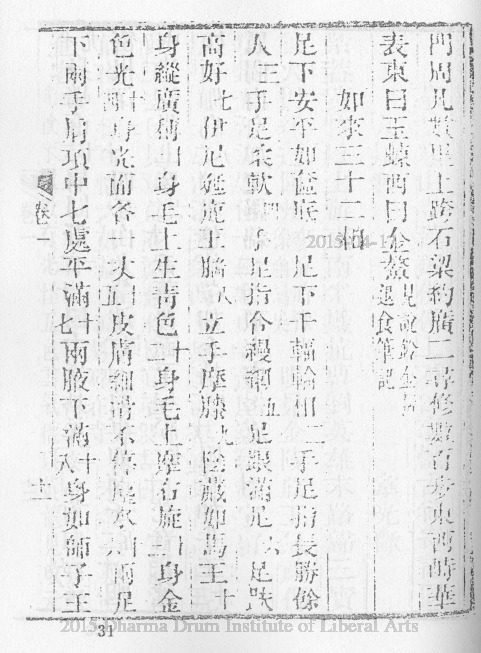 門周凡數里上跨石梁約廣二尋修數百步東西峙華
表東曰玉蝀西曰金鰲見說鈴金鰲退食筆記
如來三十二相
足下安平如奩底一足下千輻輪相二手足指長勝餘
人三手足柔軟四手足指合縵網五足跟滿足六足趺
高好七伊尼延鹿王腨八立手摩膝九陰藏如馬王十
身縱廣稱十一身毛上生青色十二身毛上靡右旋十三身金
色光十四身光面各一丈十五皮膚細滑不停塵水十六兩足
下兩手肩項中七處平滿十七兩腋下滿十八身如師子王
卷一
2015-04-1
31
2015 Dharma Drum Institute of Liberal Arts